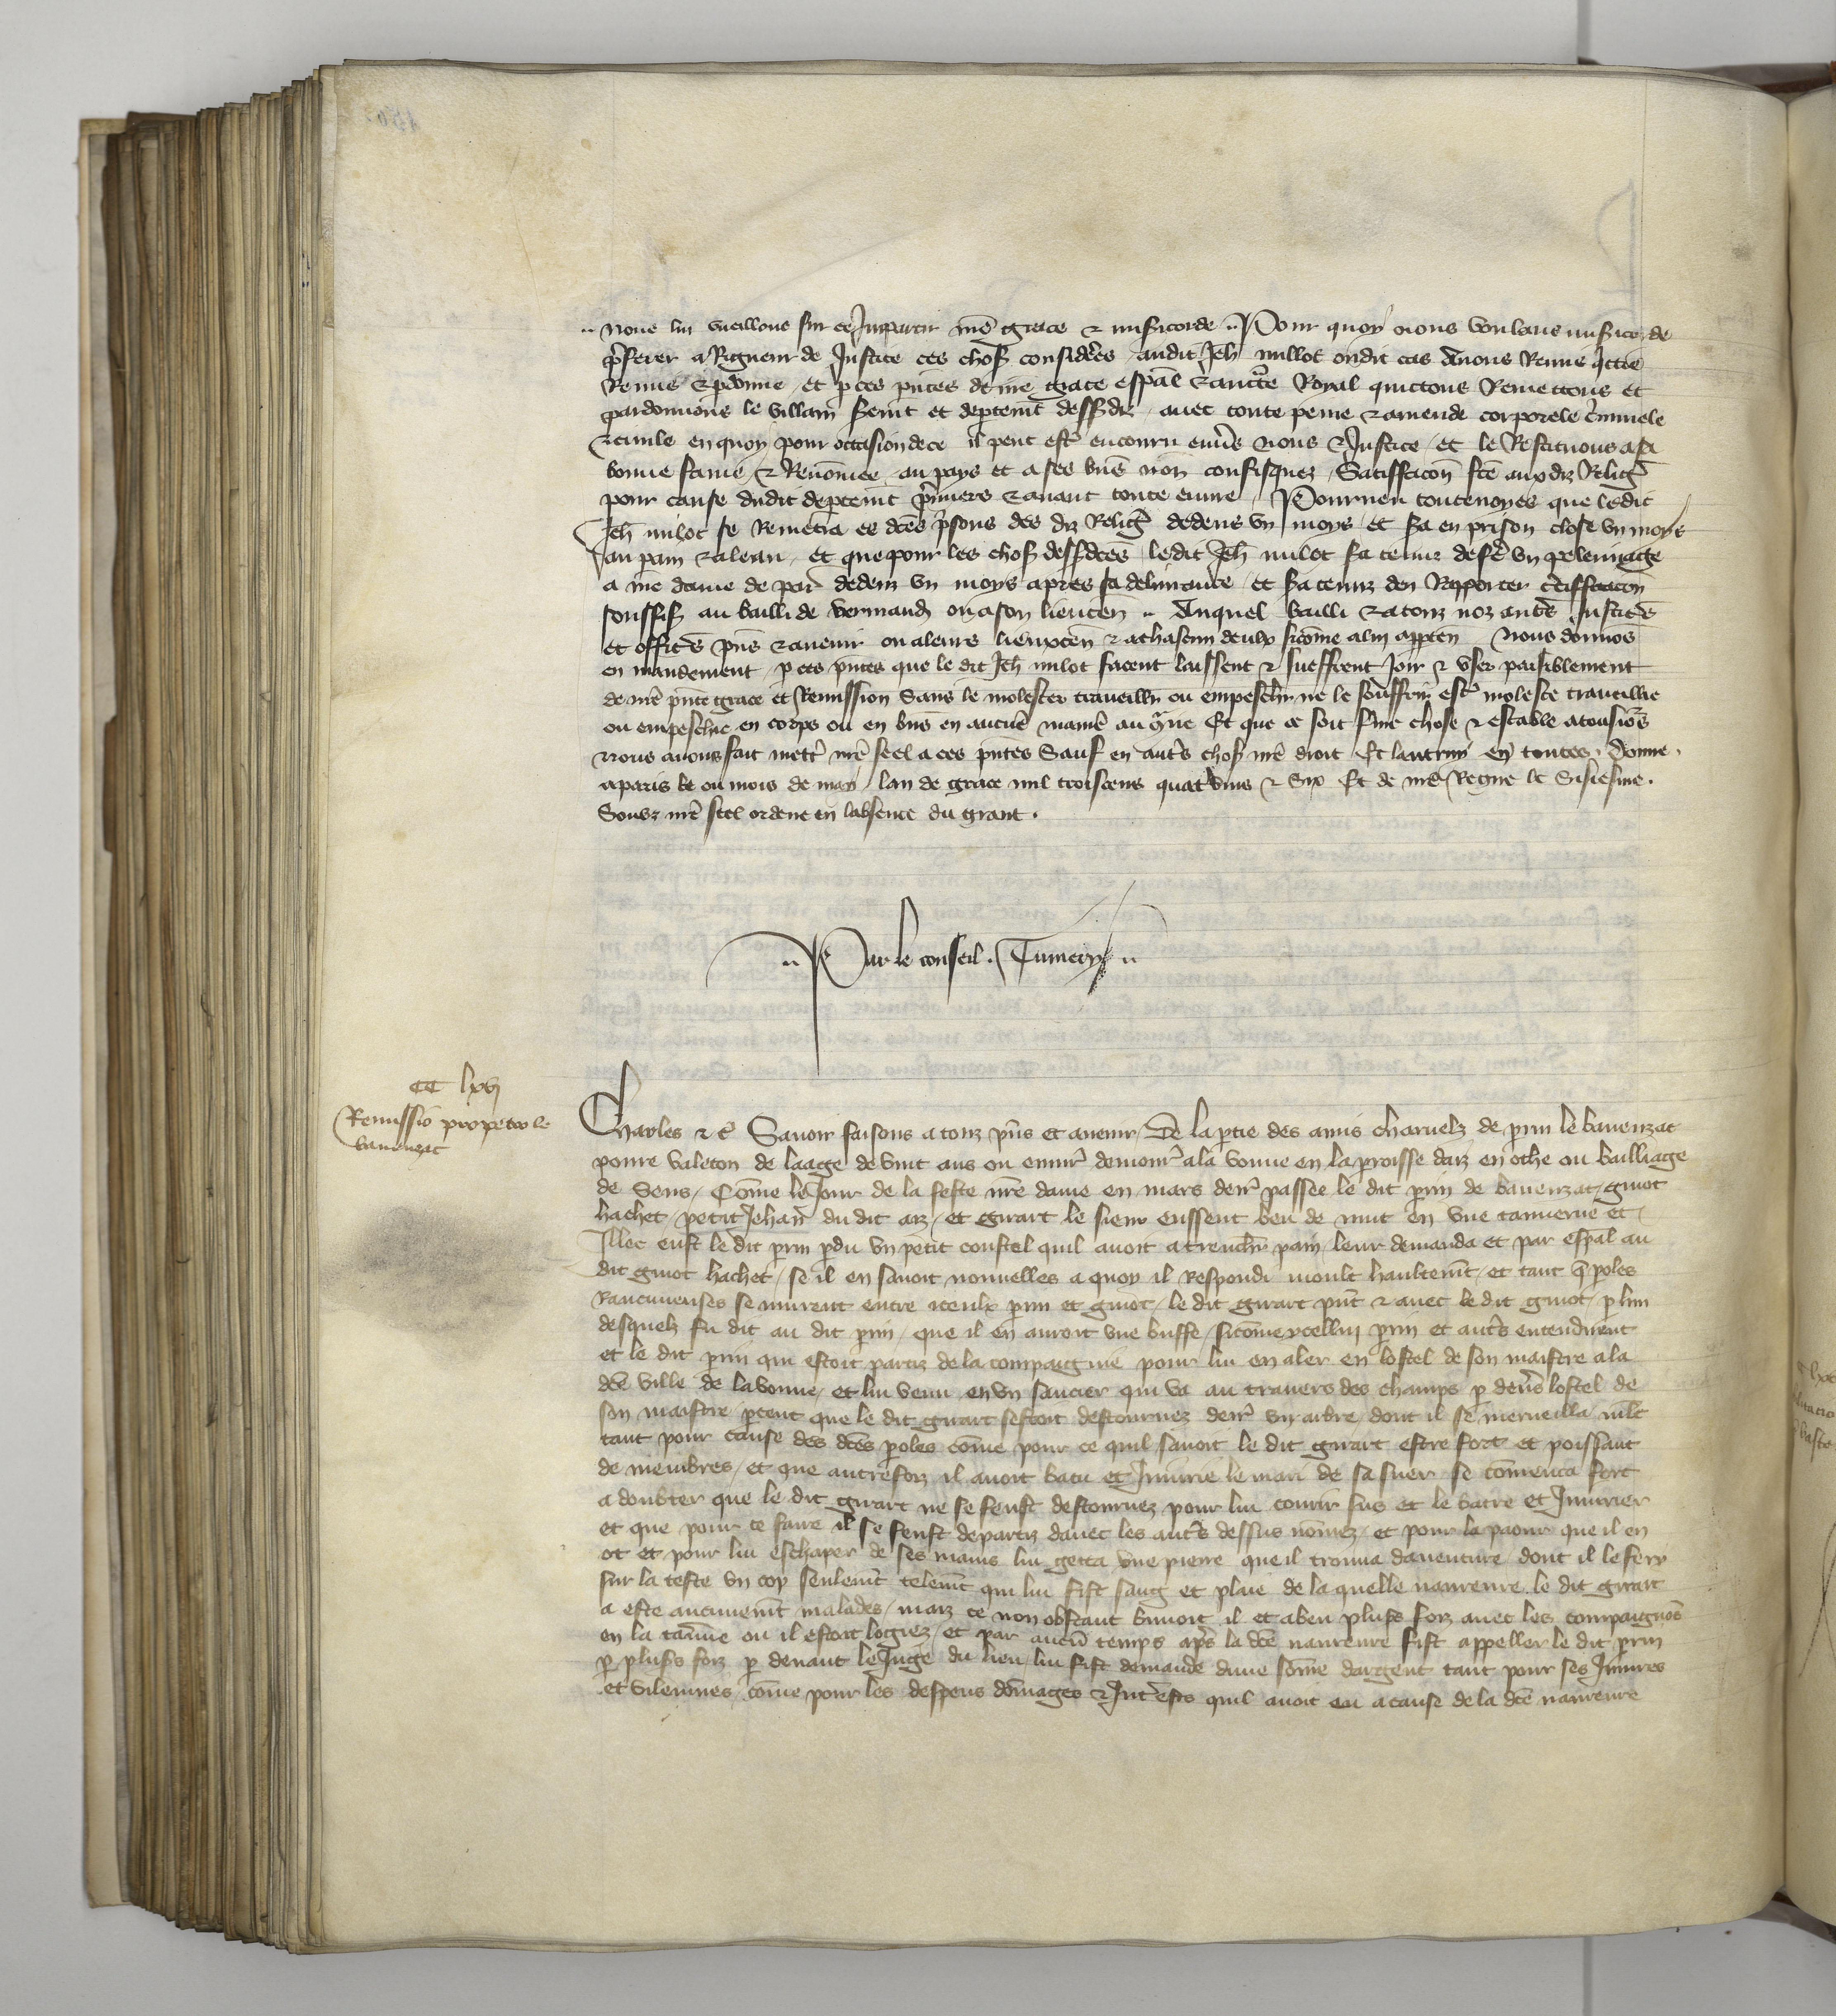 nous lui vueillons sur ce Impartir nrē grace & miſericorde Pour quoy nous voulans miſericorde
p̄ferer a Rigueur de Juſtice ces choſ conſiderees audit Jeh millot oudit cas Auons Remis qctie
Remis & pdonne et p ces pñtes de nrē grace eſpal & aucte Royal quictons Remettons et
pardonnons le villain ſerut et deptemt deſſdiz auec toute peine & amende corporele criminele
& ciuile en quoy pour occasion de ce il peut eſtr encouru enuers nous & Juſtice et le Reſtituons a ſa
bonne fame & Renōmee au pays et a ſes bñs non confiſquez Satiffacōn fcē aux diz Relig
pour cauſe dudit deptemt premiers & auant toute euure Pourueu toutevoyes que ledit
Jeh milot ſe Remetra es dcēs priſons des diz Relig dedens vn moys et ſera en priſon cloſe vn moys
au pain & a leau et que pour les choſ deſſdcēs ledit Jeh milot ſera tenuz de fer vn pelerinage
a nrē dame de dedenz vn moys apres ſa deliurance et ſera tenuz den Rapporter certifficacōn
ſouffiſ au bailli de vermand ou a ſon lieuten Auquel bailli & a touz noz autes Juſtices
et offices pñs & auenir ou a leurs lieuxten & a chaſcun deulx ſicōme a lui apptēn Nous donnos
en mandement p ces pñtes que le dit Jeh milot facent laiſſent & sueffrent joir & vſer paiſiblement
de nrē pñte grace et Remiſſion Sans le moleſter traueillr ou empeſchr ne le ſouffrir eſtr moleſte trauaillie
ou empeſchie en corps ou en bñs en aucune maniē au qtrāire Et que ce ſoit ferme choſe & eſtable a touſiors
Nous auons fait mettr nrē ſeel a ces pñtes Sauf en autes choſ nrē droit Et lautruy en toutes Donne
a paris le ou mois de may lan de grace mil troiscens quatvins & Six Et de nrē Regne le Siſieſme
Soubz nrē ſeel ordene en labſence du grant
Par le conſeil
CC lxvj
Remiſſio pro petro le
bauenzat
Charles &c Sauoir faiſons a touz pñs et auenir De la ptie des amis charnelz de prin le bauenzat
poure valeton de laage de vint ans ou enuir demour a la vonne en la proiſſe daiz en othe ou bailliage
de Sens Cōme le Jour de la feſte nrē dame en mars denr paſſee le dit prin de bauenzat guiot
hachet petit Jehan du dit aiz et girart le ſieur euſſent beu de nuit en vne tauuerne et
Illec euſt le dit prin pdu vn petit couſtel quil auoit a trenchr pain leur demanda et par eſpal au
dit guiot hachet ſe il en ſauoit nouuelles a quoy il Reſpondi moult haultemt et tant q proles
Rancuneuses ſe murent entre iceulx prin et guiot le dit girart pñt & auec le dit guiot p lun
deſquelz fu dit au dit prin que il en auroit vne buffe ſicōme ycellui prin et autes entendirent
et le dit prin qui eſtoit partiz de la compaignie pour lui en aler en loſtel de ſon maiſtre a la
dcē ville de lavonne et lui venu en vn ſancier qui va au trauers des champs p deuers loſtel de
ſon maiſtre pceut que le dit girart ſeſtoit deſtournez denr vn arbre dont il ſe merueilla mlt
tant pour cauſe des dcēs proles cōme pour ce quil ſauoit le dit girart eſtre fort et poiſſant
de membres et que autreffoiz il auoit batu et Jniurie le mari de ſa ſuer ſe cōmenca fort
a doubter que le dit girart ne ſe feuſt deſtournez pour lui courir ſus et le batre et Jniurier
et que pour ce faire il ſe feuſt departiz dauec les autes deſſus nōmez et pour la paour que il en
ot et pour lui eſchaper de ſes mains lui getta vne pierre que il trouua dauenture dont il le fery
ſur la teſte vn cop ſeulemt telemt qui lui fiſt ſang et plaie de la quelle naureure le dit girart
a eſte aucunemt malades maiz ce non obſtant buuoit il et a beu pluſrs foiz auec les compaignōs
en la tauūe ou il eſtoit logiez et par aucū temps aprs la dcē naureure fiſt appeller le dit prin
p pluſrs foiz p deuant le Juge du lieu lui fiſt demande dune ſōme dargent tant pour ſes Jniures
et vilennies cōme pour les deſpens dōmages & Jnteeſts quil auoit eu a cauſe de la dcē naureure